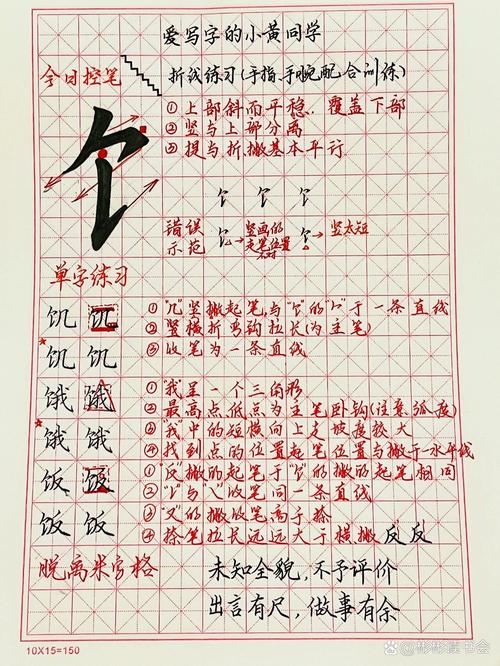 爱写字的小黄同学
今日控笔 折线练习(手指、手腕配合训练)
①上部斜而平稳 覆盖下部
②竖与上部分离
③提与折、撇基本平行
饣
饣 饣 饣
错误示范 饣→竖画的走笔位置不对 饣→竖太短
单字练习
饥 饥 ①"几"竖撇起笔,与"饣"的"𠂊"于一条直线
②竖横折弯钩拉长(为主笔)
饥 饥 ③收笔为一条直线
饿 饿 ①"我"呈一个三角形
②最高点低点为主笔卧钩(注意弧度)
饿 饿 ③"我"中的短横向上走坡度较大
④找到点的位置起笔位置与撇于一水平线
饭 饭 ①"反"撇的起笔于"饣"的撇的起笔相同
②"丿"与"乀"收笔同一条直线
饭 饭 ③"又"的撇收笔高于捺
④捺笔拉长远远大于横撇 反 反
脱离米字格 未知全貌,不予评价
出言有尺,做事有余
10X15=150